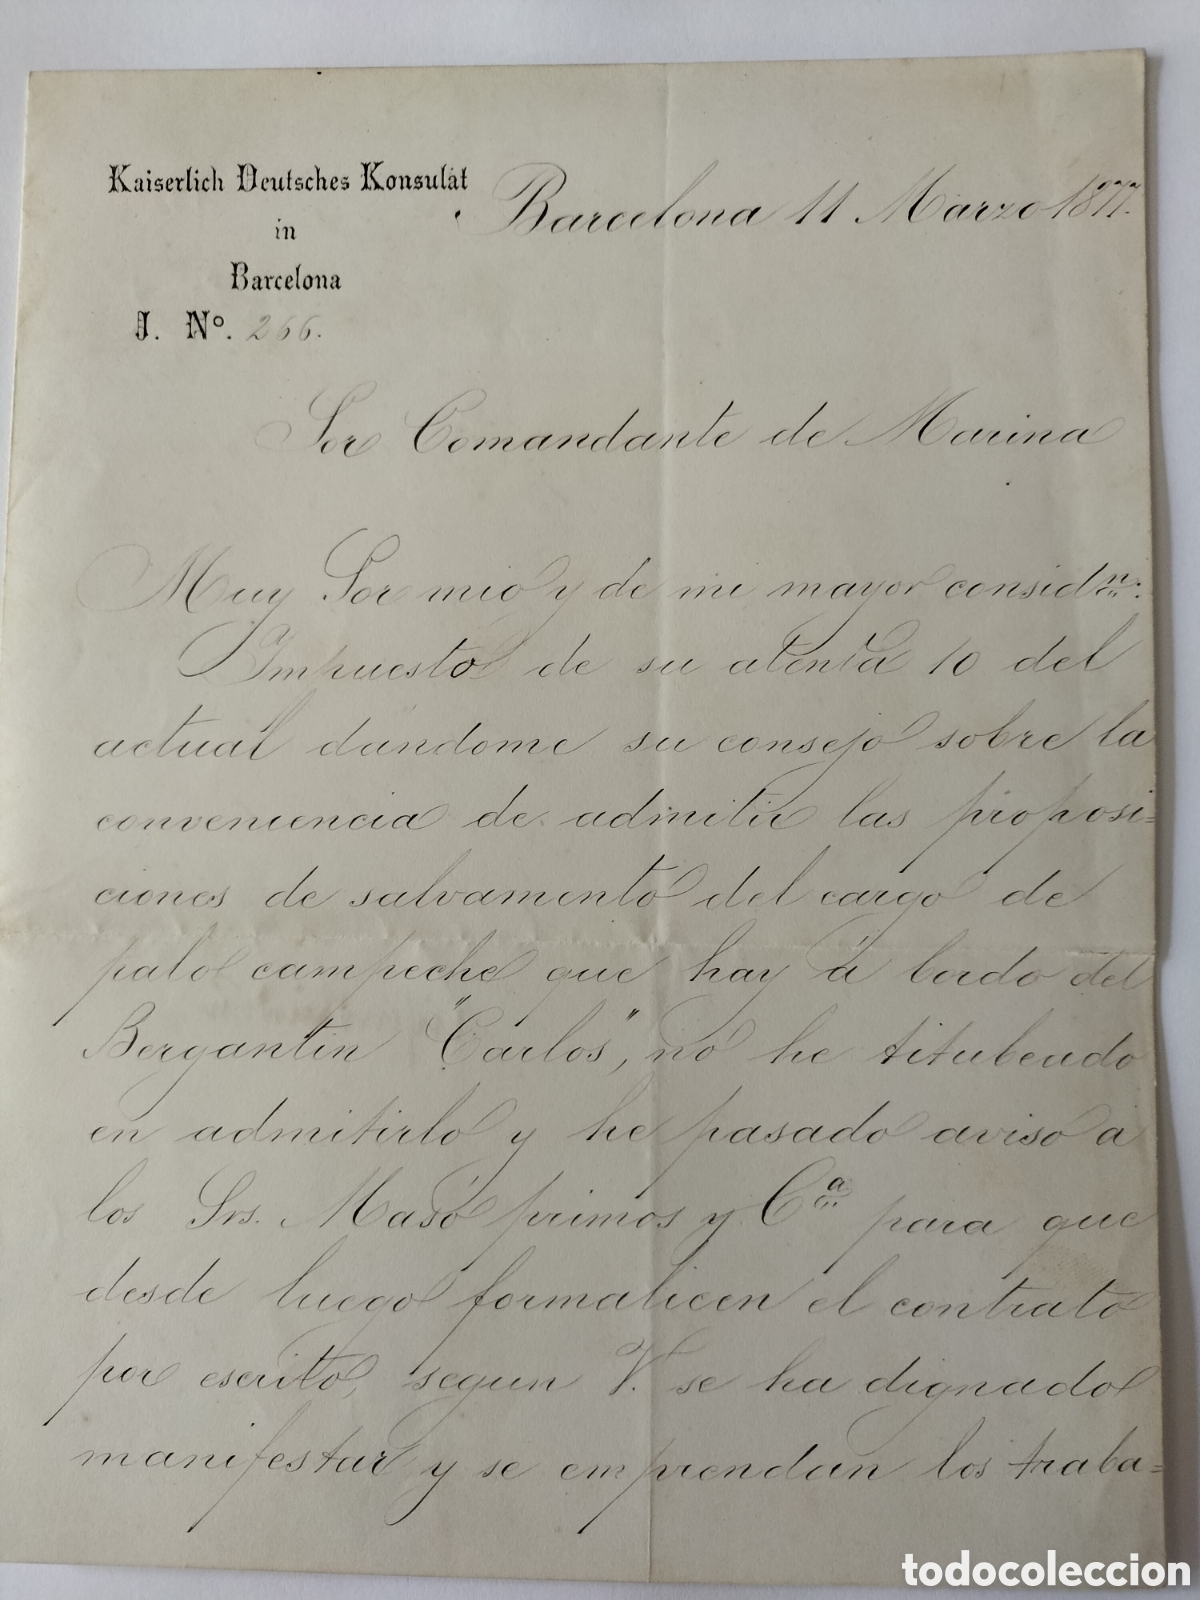 Kaiserlich Deutsches Konsulat
in
Barcelona
J. Nº. 266.
Barcelona 11 Marzo 1877.
Sor Comandante de Marina
Muy Sor mio y de mi mayor considn.
Impuesto de su atenta 10 del
actual dándome su consejo sobre la
conveniencia de admitir las proposi=
ciones de salvamento del cargo de
palo campeche que hay á bordo del
Bergantin "Carlos", no he titubeado
en admitirlo y he pasado aviso a
los Srs. Masó primos y Cª para que
desde luego formalicen el contrato
por escrito, segun V. se ha dignado
manifestar y se emprendan los traba=
todocoleccion